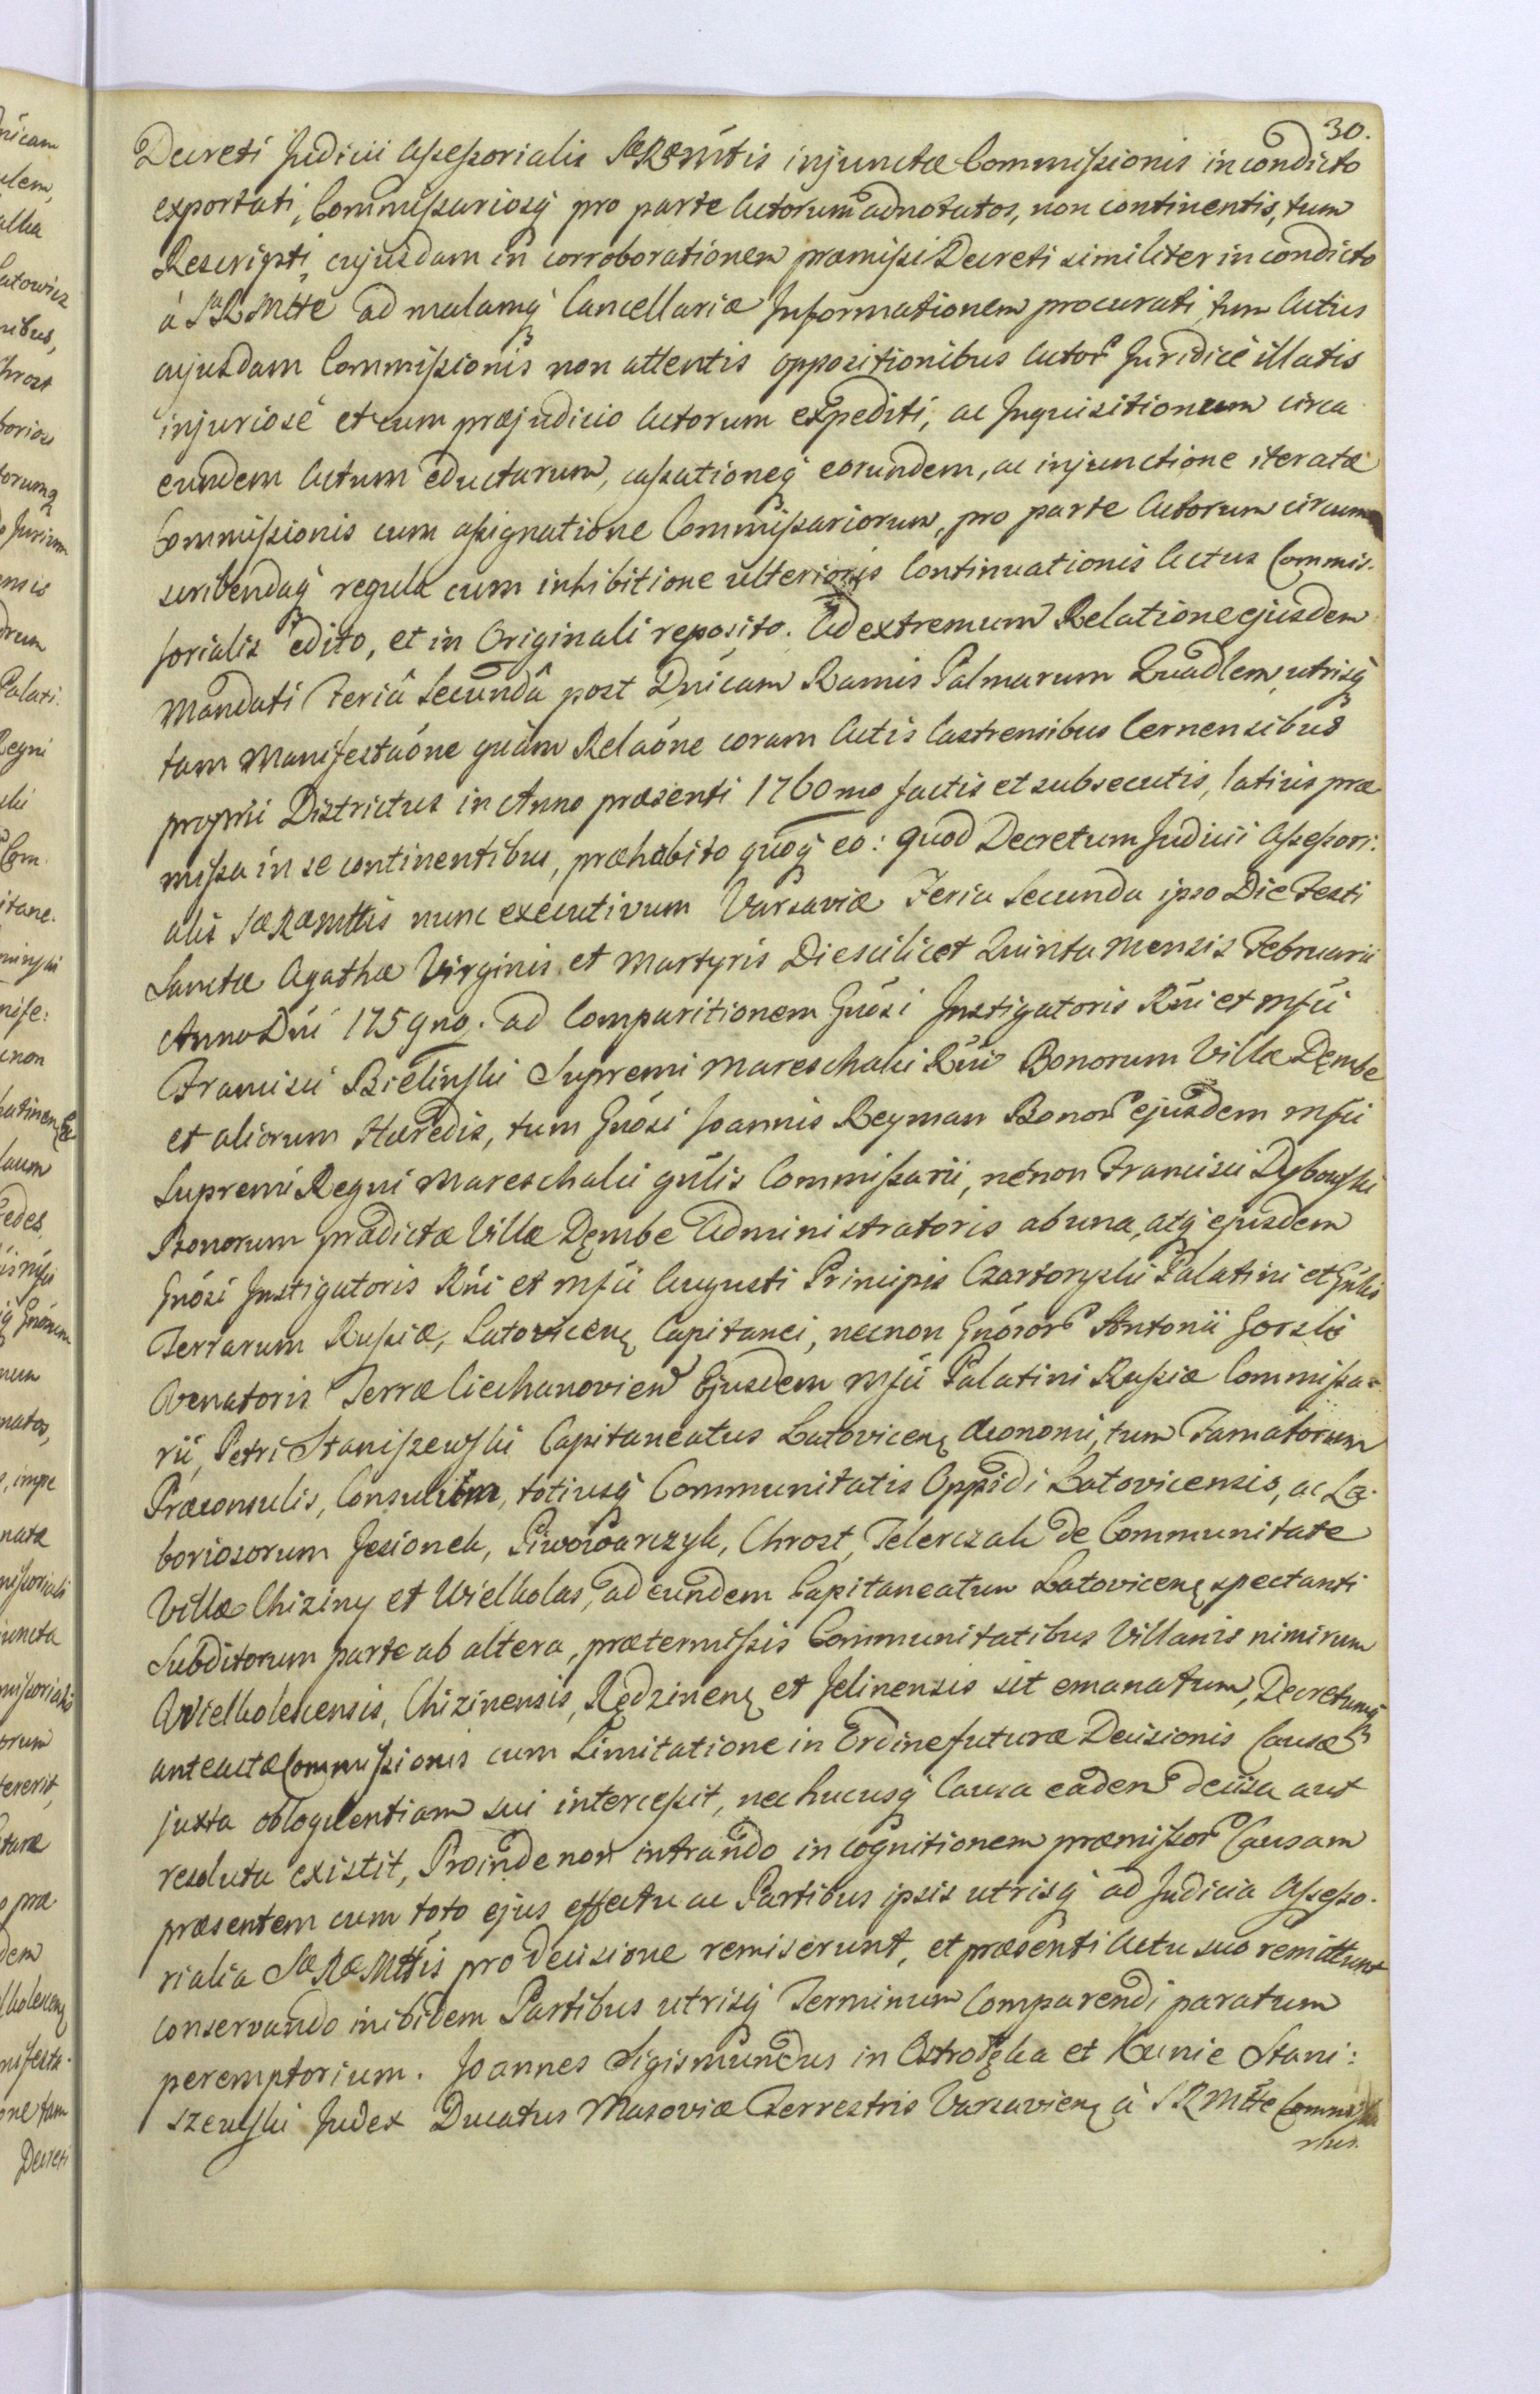 30.
Decreti Judicii Assessorialis SæRæMttis injunctæ Commissionis in condicto
exportati, Commissariosq̃ pro parte Actorum adnotatos, non continentis, tum
Rescripti cujusdam in corroborationem præmissi Decreti similiter in condicto
à SaRMtte ad malamq̃ Cancellariæ Informationem procurati tum Actus
cujusdam Commissionis non attentis oppositionibus Actor̃ Juridicè illatis
injuriosè et cum præjudicio Actorum expediti, ac Inquisitionum circa
eundem Actum eductarum, cassationeq̃ eorundem, ac injunctione iteratæ
Commissionis cum assignatione Commissariorum, pro parte Actorum circum
scribendaq̃ regula cum inhibitione ulterioris Continuationis Actus Commis-
sorialis edito, et in Originali reposito. Ad extremum Relatione ejusdem
Mandati Feriâ Secundâ post Dnicam Ramis Palmarum Quadlem utrisq̃
tam Manifestaõne quàm Relaõne coram Actis Castrensibus Cernensibus
proprii Districtus in Anno præsenti 1760mo factis et subsecutis, latius præ
missa in se continentibus, præhabito quoq̃ eo: quod Decretum Judicii Assessori:
alis SæRæMttis nunc executivum Varsaviæ Feria Secunda ipso Die Festi
Sanctæ Agathæ Virginis et Martyris Die scilicet Quinta Mensis Februarii
Anno Dni 1759no. ad Comparitionem Gnosi Instigatoris Rni et Mfci
Francisci Bielinski Supremi Mareschalci Rni Bonorum Villæ Dembe
et aliorum Hæredis, tum Gnosi Joannis Reyman Bonor̃ ejusdem Mfci
Supremi Regni Mareschalci gñlis Commissarii, nenon Francisci Dybowski
Bonorum prædictæ Villæ Dembe Administratoris ab una, atq̃ ejusdem
Gnosi Instigatoris Rni et Mfci Augusti Principis Czartoryski Palatini et Gñlis
Terrarum Russiæ, Latovicen Capitanei, necnon Gnosor̃ Antonii Gorski
Venatoris Terræ Ciechanovien Ejusdem Mfci Palatini Russiæ Commissa-
rii, Petri Staniszewski Capitaneatus Latovicen Œconomi, tum Famatorum
Præconsulis, Consulum, totiusq̃ Communitatis Oppidi Latovicensis, ac La-
boriosorum Jesionek, Piwowarczyk, Chrost, Telerczak de Communitate
Villæ Chiziny et Wielkolas, ad eundem Capitaneatum Latovicen spectanti
Subditorum parte ab altera, prætermissis Communitatibus Villanis nimirum
Wielkolescensis, Chizinensis, Rędzinen et Jelinensis sit emanatum, Decretumq̃
anteactæ Commissionis cum Limitatione in Ordine futuræ Decisionis Causæ
juxta obloquentiam sui intercessit, nec hucusq̃ Causa eadem decisa aut
resoluta existit, Proinde non intrando in cognitionem præmissor̃ Causam
præsentem cum toto ejus effectu ac Partibus ipsis utrisq̃ ad Judicia Assesso-
rialia SæRæMttis pro decisione remiserunt, et præsenti Actu suo remittunt
conservando inibidem Partibus utrisq̃ Terminum Comparendi paratum
peremptorium. Joannes Sigismundus in Ostrołęka et Kunie Stani:
szewski Judex Ducatus Masoviæ Terrestris Varsavien à SRMtte Commissa
rius.